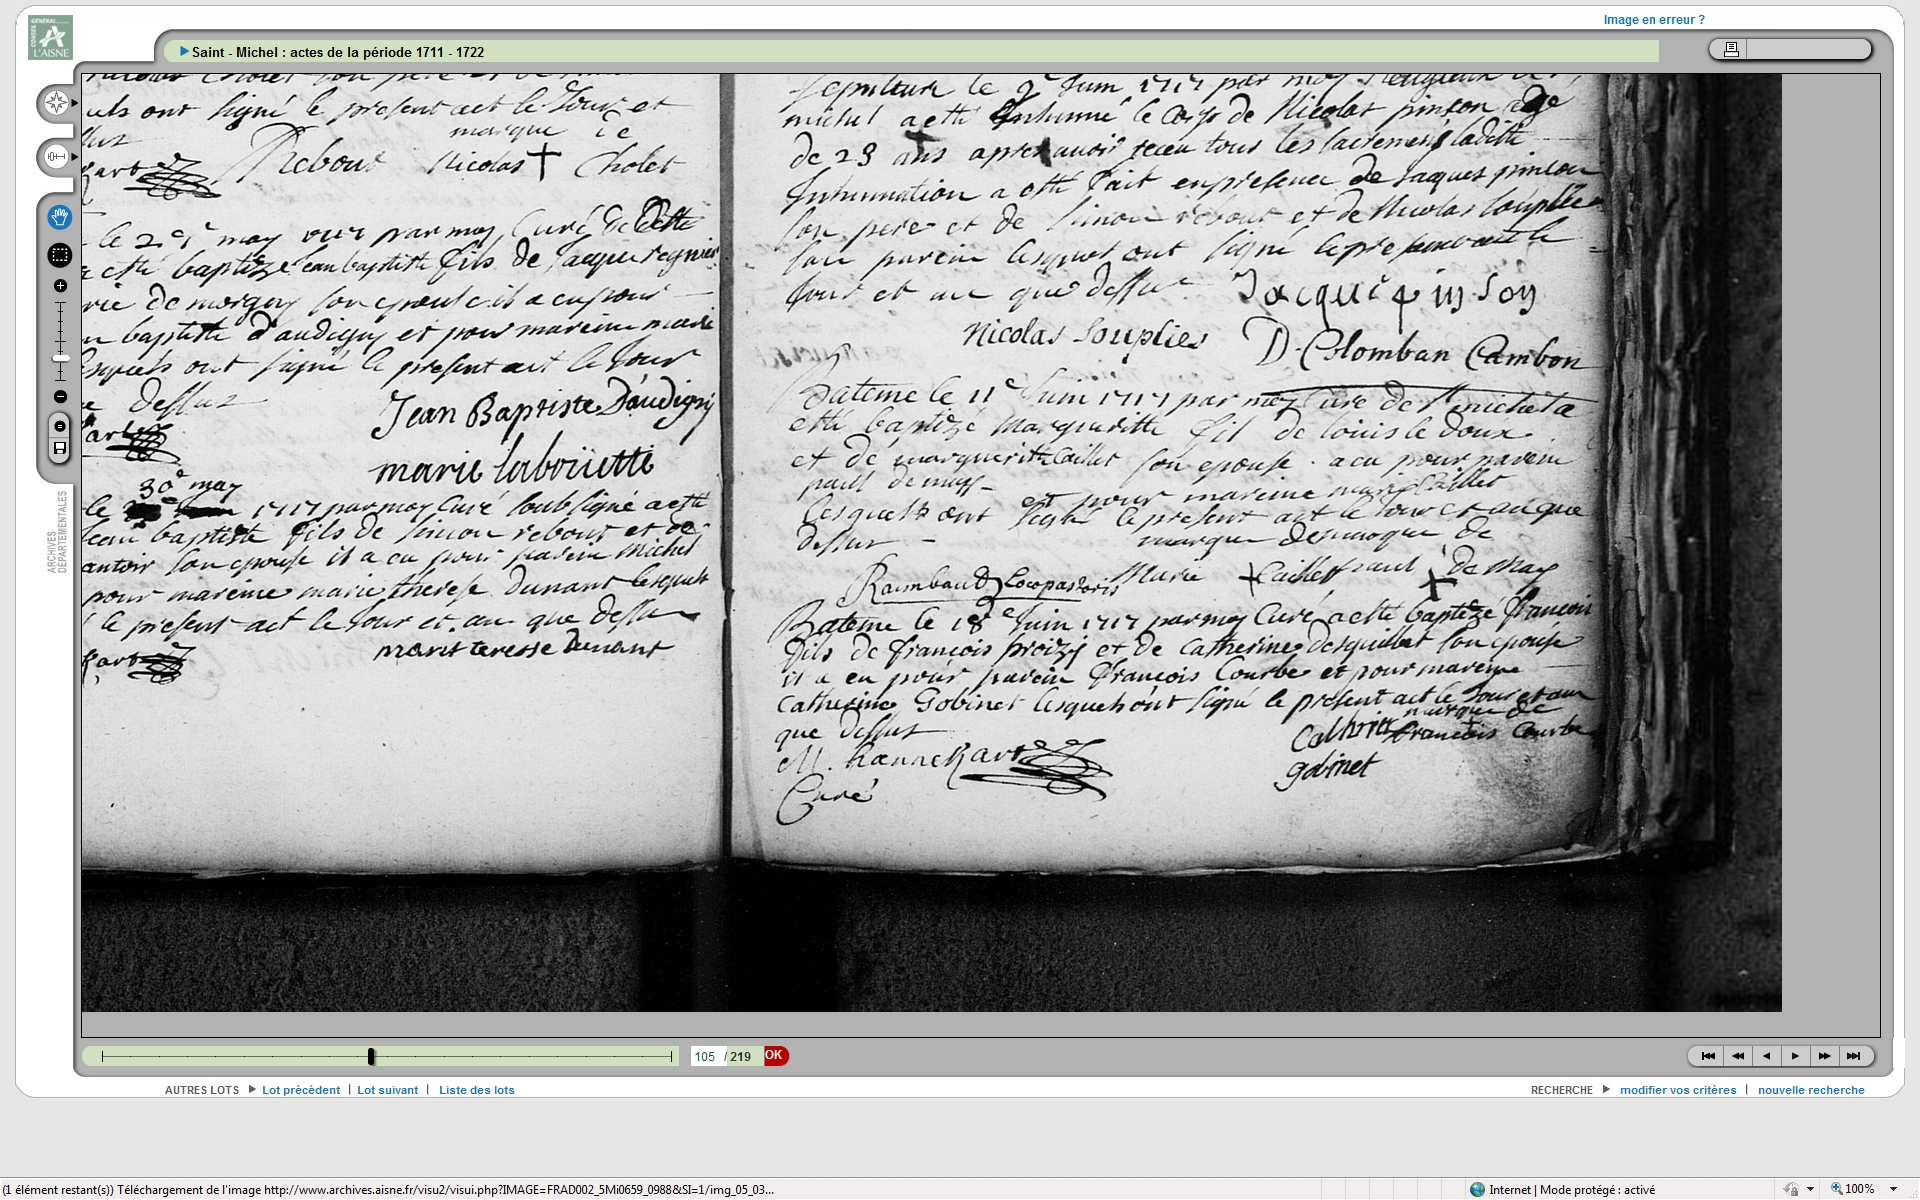 Image en erreur ?
CONSEIL GÉNÉRAL
L'AISNE
Saint - Michel : actes de la période 1711 - 1722
ARCHIVES DÉPARTEMENTALES
ont signé le present act le Jour et
marque de
Rebour Nicolas Cholet
may 1717 par moy Curé de
a esté baptizé Jean baptiste fils de Jacque regnier
de morgny son epouse il a eu pour
baptiste D'audigny et pour mareine marie
lesquels ont signé le present act le Jour
que dessus
Jean Baptiste Daudigny
marie laboüette
30e may
le 1717 par moy Curé soubsigné a esté
Jean baptiste fils de simon rebour et de
antoir son epouse il a eu pour parein michel
pour mareine marie therese Dunant lesquels
le present act le Jour et an que dessus
marie teresse Dunant
sepulture le 9 Juin 1717 par moy Religieux de
michel a esté Inhumé le Corps de Nicolas pinson agé
de 23 ans apres avoir receu tous les sacremens ladite
Inhumation a esté fait en presence de Jaques pinson
son pere et de simon rebour et de Nicolas souplie
son parein lesquels ont signé le present act le
Jour et an que dessus
Jacque pinson
Nicolas Souplies D. Colomban Cambon
Bateme le 11e Juin 1717 par moy Curé de St michel a
esté baptizé Margueritte fil de louis le doux
et de margueritte Caillet son epouse . a eu pour parein
paul demay et pour mareine marie Caillet
lesquels ont signé le present act le Jour et an que
dessus marque de marque de
Raimbaud Loco pastoris Marie Caillet paul de may
Bateme le 18e Juin 1717 par moy Curé a esté baptizé francois
fils de francois proizy et de Catherine desquillet son epouse
il a eu pour parein francois Courbe et pour mareine
Catherine Gobinet lesquels ont signé le present act le Jour et an
que dessus
marque de
Catherine francois Courbe
gobinet
M. hannekart
Curé
105 / 219 OK
AUTRES LOTS Lot précédent | Lot suivant | Liste des lots
RECHERCHE modifier vos critères | nouvelle recherche
(1 élément restant(s)) Téléchargement de l'image http://www.archives.aisne.fr/visu2/visui.php?IMAGE=FRAD002_5Mi0659_0988&SI=1/img_05_03...
Internet | Mode protégé : activé
100%